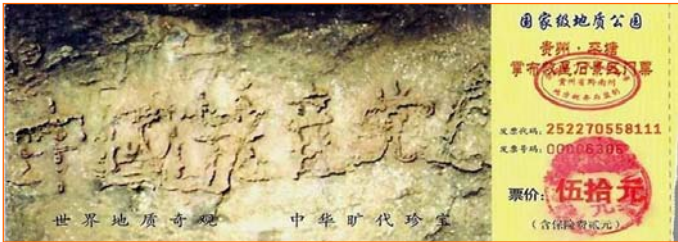 中國共產党
世界地质奇观
中华旷代珍宝
国家级地质公园
贵州·平塘
掌布
景区门票
贵州省黔南州
发票代码：252270558111
发票号码：00006306
票价：伍拾元
（含保险费贰元）